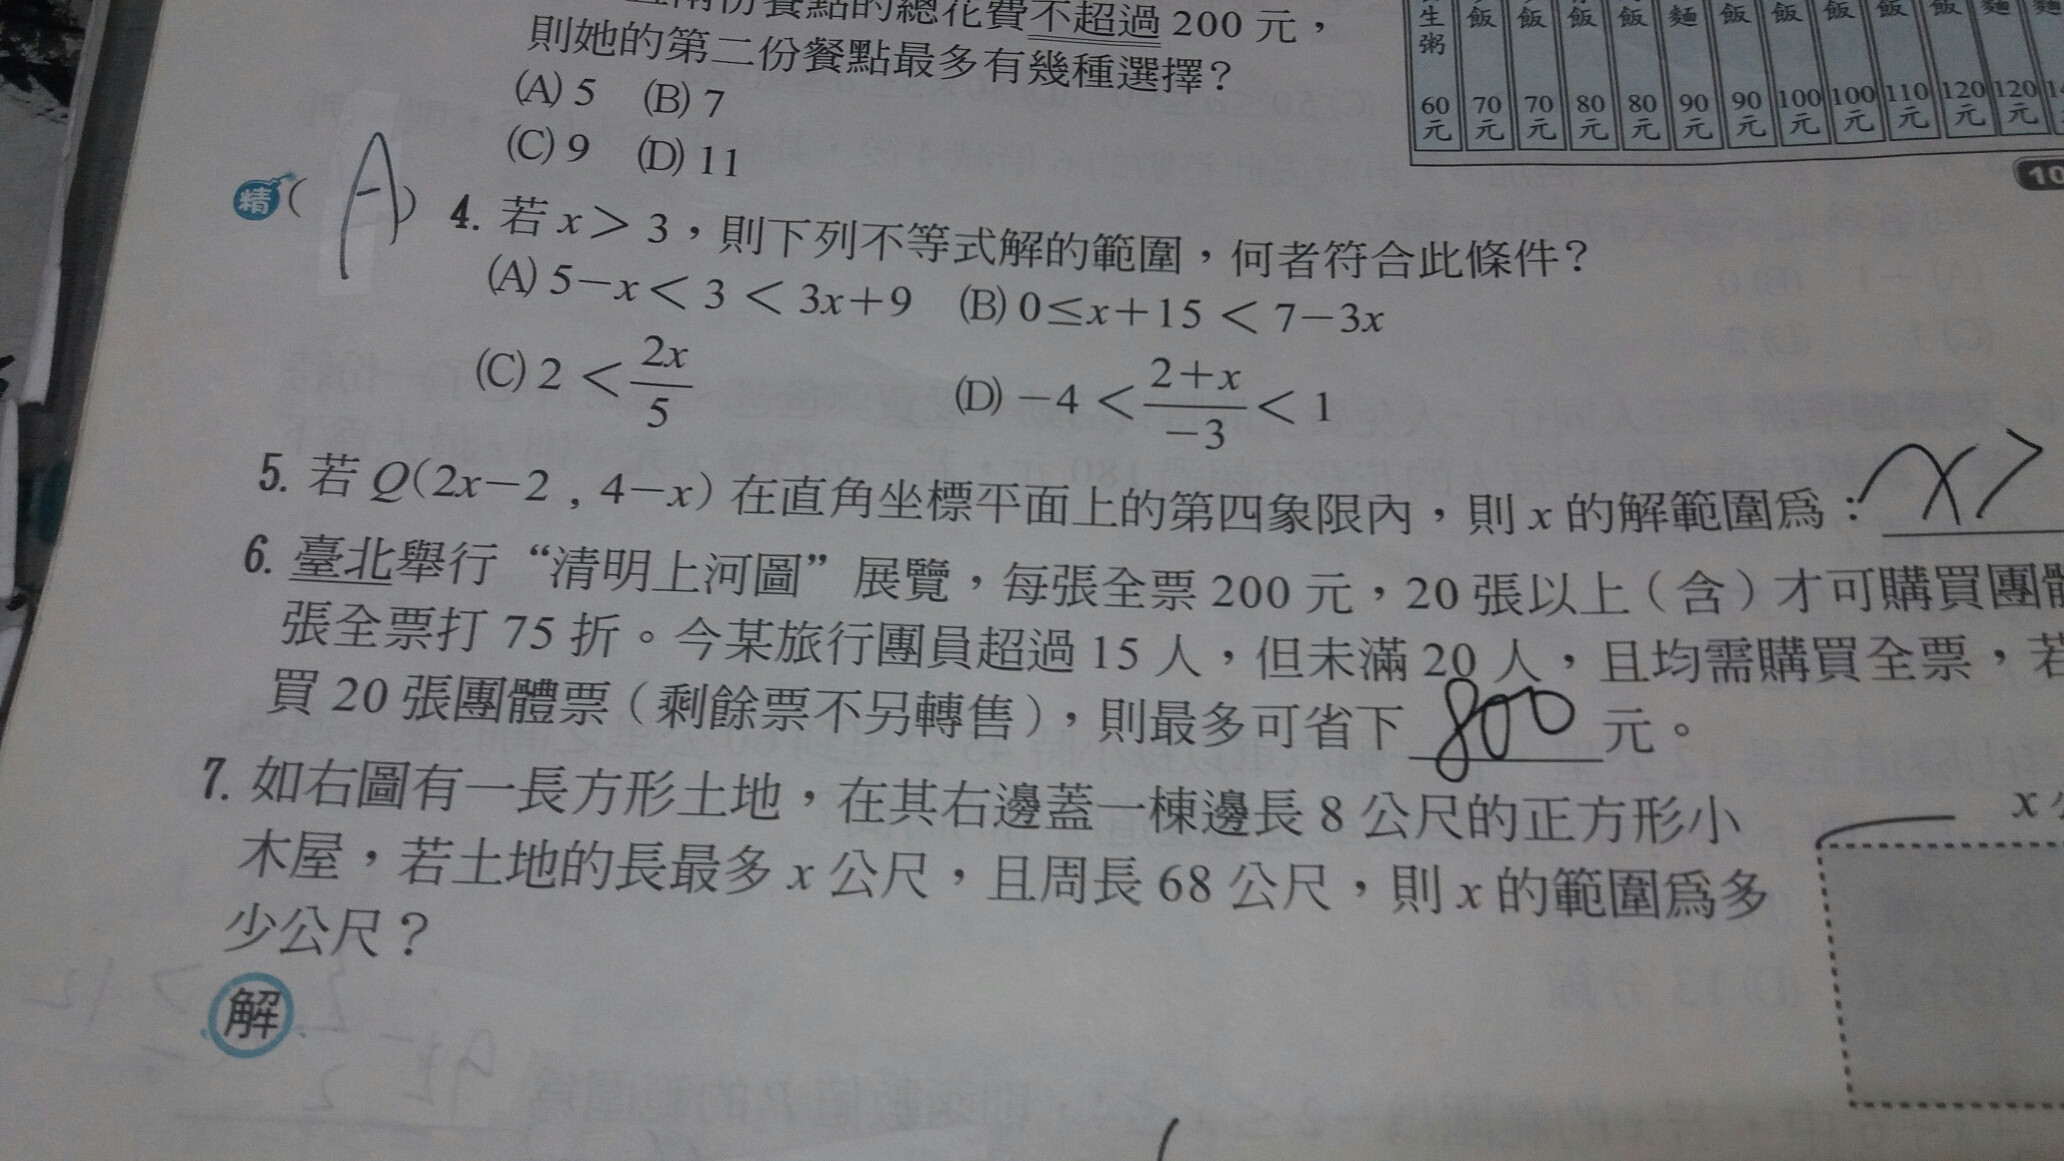 總花費不超過 200 元，
則她的第二份餐點最多有幾種選擇？
(A) 5 (B) 7
(C) 9 (D) 11
生粥 飯 飯 飯 飯 麵 飯 飯 飯 飯 飯 麵
60元 70元 70元 80元 80元 90元 90元 100元 100元 110元 120元 120元
精 ( A ) 4. 若 x＞3，則下列不等式解的範圍，何者符合此條件？
(A) 5－x＜3＜3x＋9 (B) 0≤x＋15＜7－3x
(C) 2＜2x/5 (D) －4＜(2＋x)/－3＜1
5. 若 Q(2x－2 , 4－x) 在直角坐標平面上的第四象限內，則 x 的解範圍為：x>
6. 臺北舉行“清明上河圖”展覽，每張全票 200 元，20 張以上（含）才可購買團體
張全票打 75 折。今某旅行團員超過 15 人，但未滿 20 人，且均需購買全票，若
買 20 張團體票（剩餘票不另轉售），則最多可省下 800 元。
7. 如右圖有一長方形土地，在其右邊蓋一棟邊長 8 公尺的正方形小
木屋，若土地的長最多 x 公尺，且周長 68 公尺，則 x 的範圍為多
少公尺？
x
解